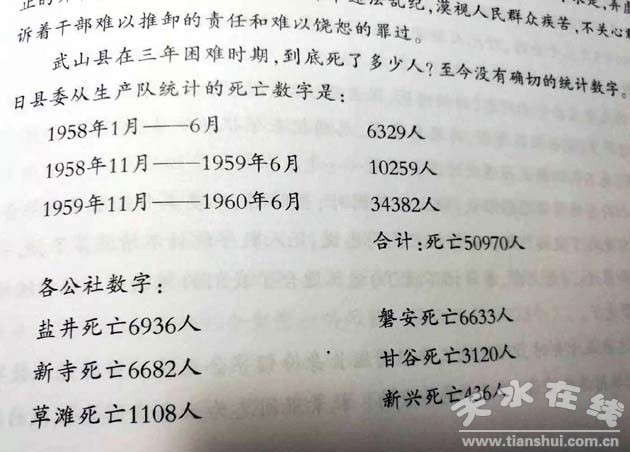 正的
违法乱纪,漠视人民群众疾苦,不关心
诉着干部难以推卸的责任和难以饶恕的罪过。
武山县在三年困难时期,到底死了多少人?至今没有确切的统计数字。
日县委从生产队统计的死亡数字是:
1958年1月——6月 6329人
1958年11月——1959年6月 10259人
1959年11月——1960年6月 34382人
合计:死亡50970人
各公社数字:
盐井死亡6936人 磐安死亡6633人
新寺死亡6682人 甘谷死亡3120人
草滩死亡1108人 新兴死亡436人
天水在线
www.tianshui.com.cn